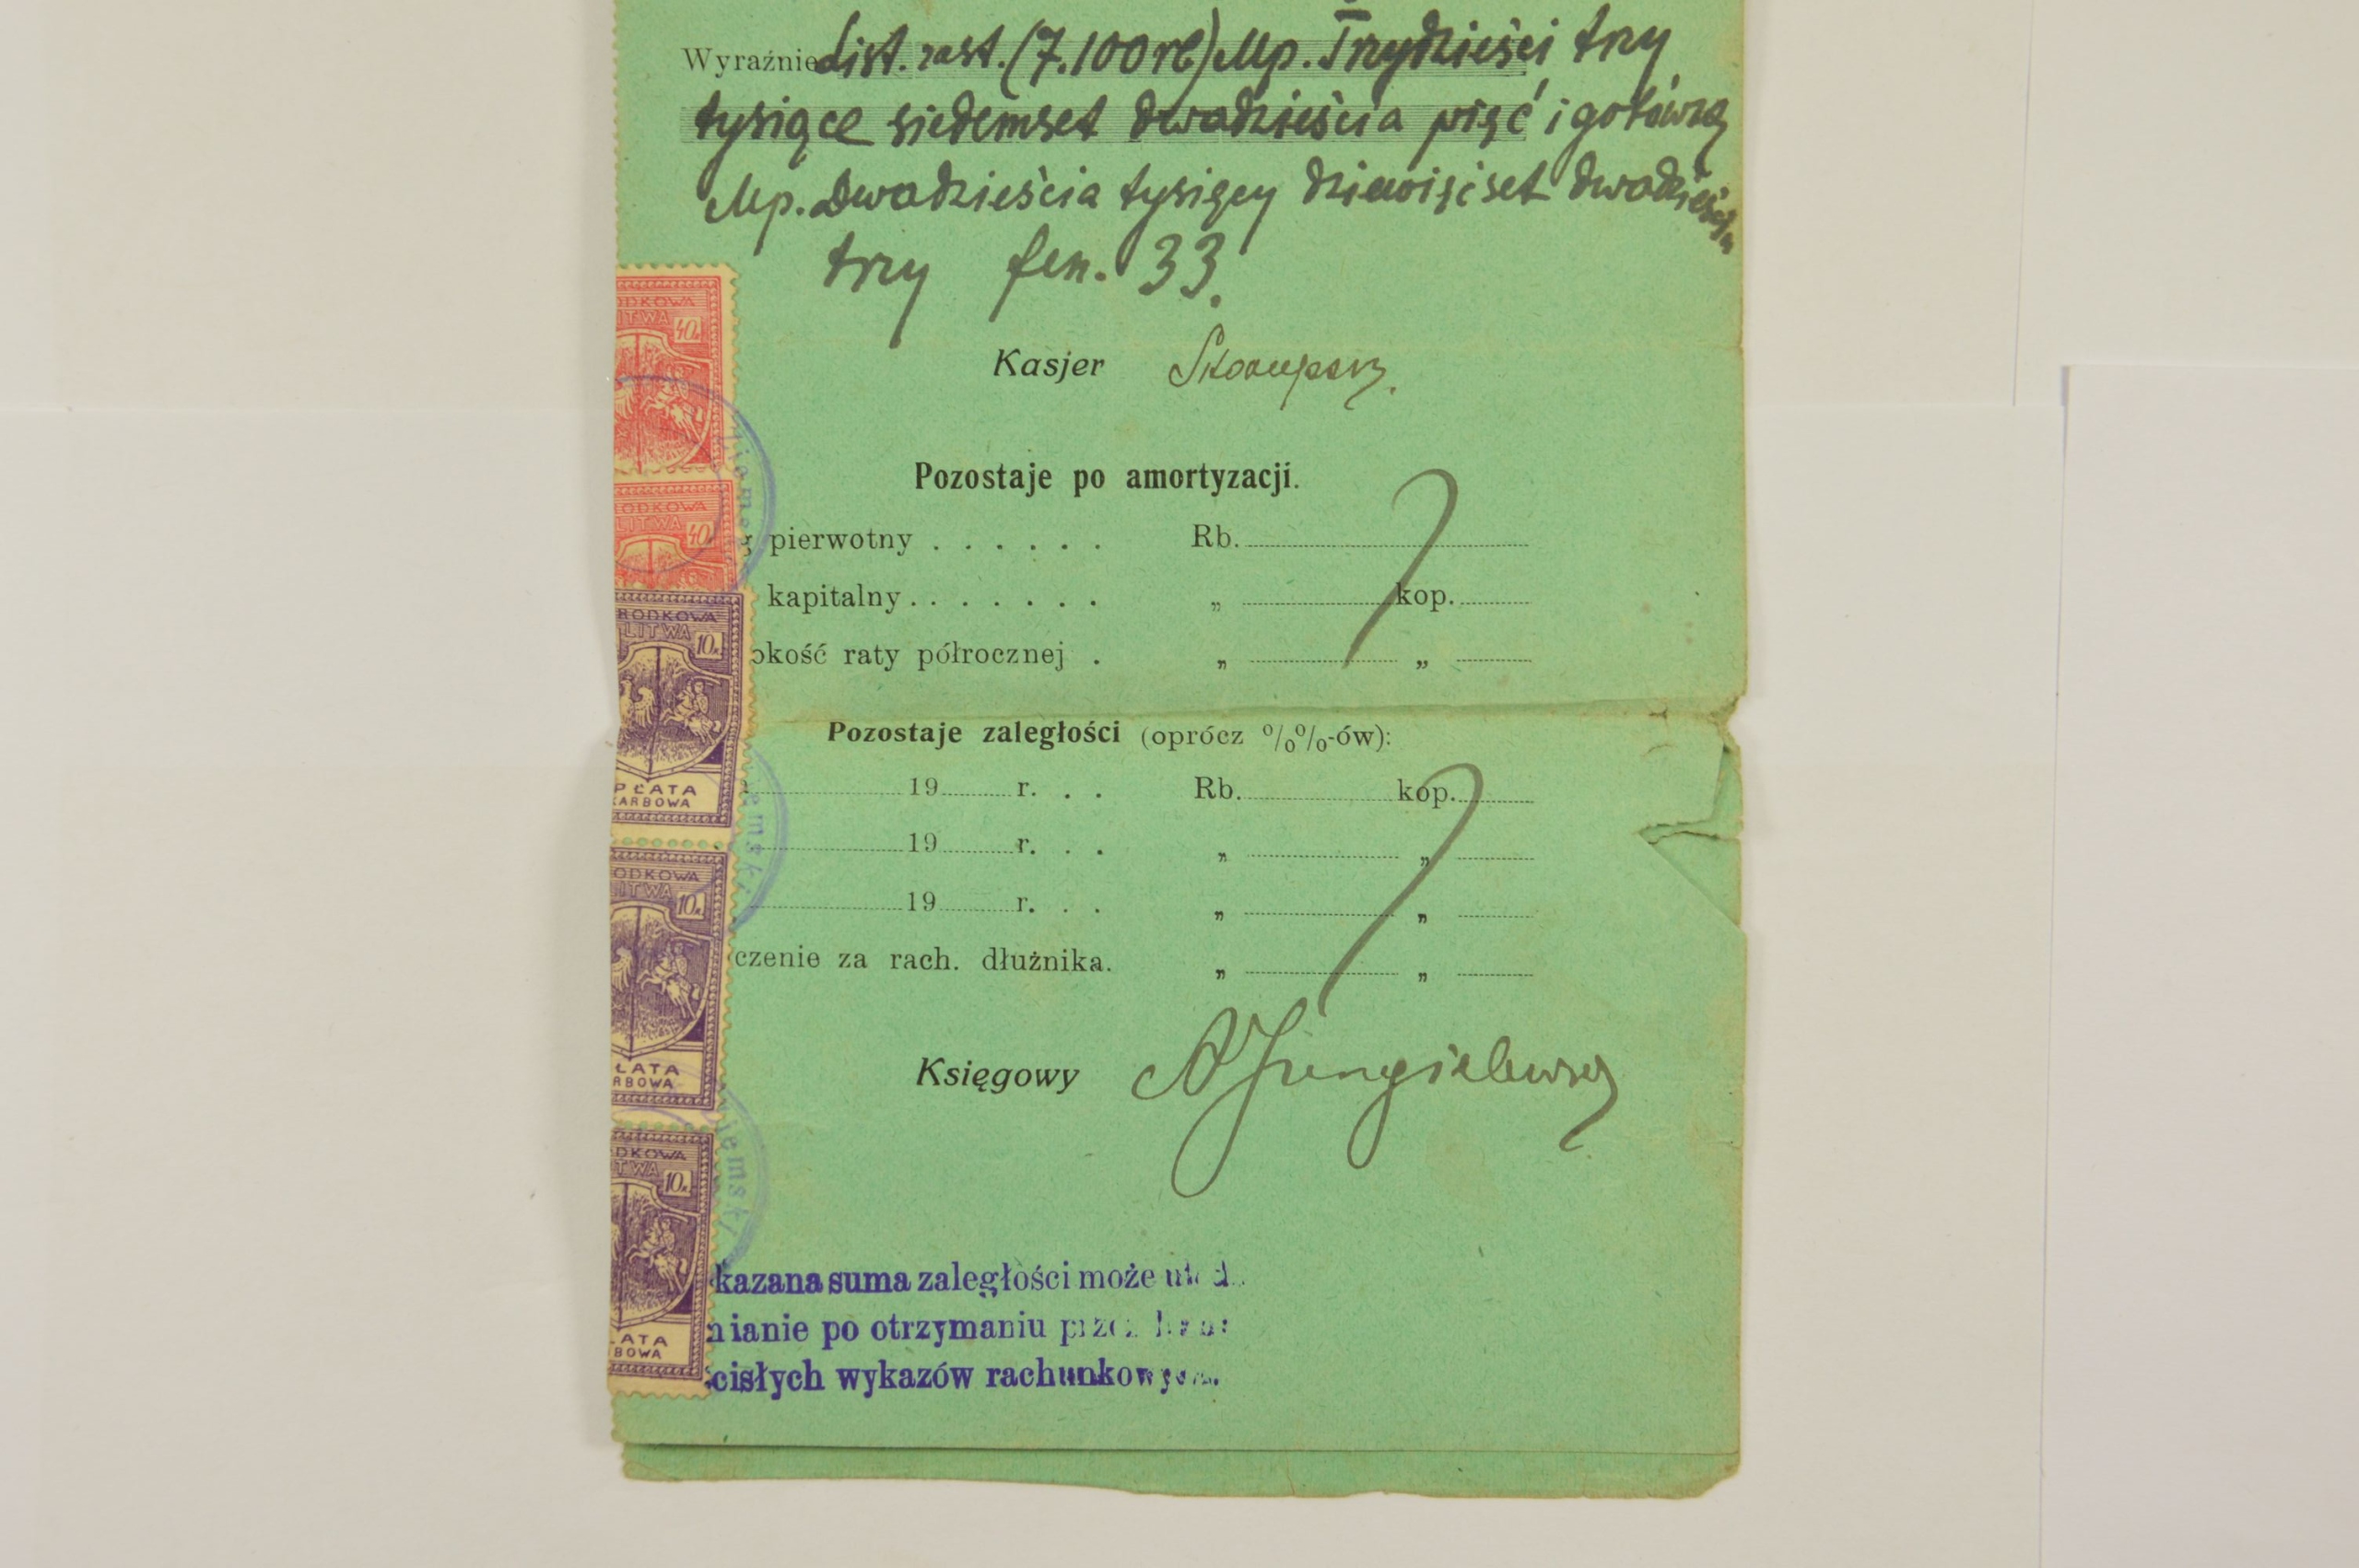 Wyraźnie List. zast. (7.100 rb) Mp. Trzydzieści trzy
tysiące siedemset dwadzieścia pięć i gotówką
Mp. Dwadzieścia tysięcy dziewięćset dwadzieścia
trzy fen. 33.
Kasjer
Pozostaje po amortyzacji.
g pierwotny . . . . . . Rb.
kapitalny . . . . . . . „ kop.
okość raty półrocznej . „ „
Pozostaje zaległości (oprócz %%-ów):
19 r. . . Rb. kop.
19 r. . . „ „
19 r. . . „ „
czenie za rach. dłużnika. „ „
Księgowy
kazana suma zaległości może
mianie po otrzymaniu przez
ścisłych wykazów rachunkowych.
ODKOWA
ITWA
40
ODKOWA
LITWA
40
RODKOWA
LITWA
10
PŁATA
KARBOWA
ODKOWA
ITWA
10
ŁATA
RBOWA
DKOWA
TWA
10
ATA
BOWA
ziemski
iemski
iemski